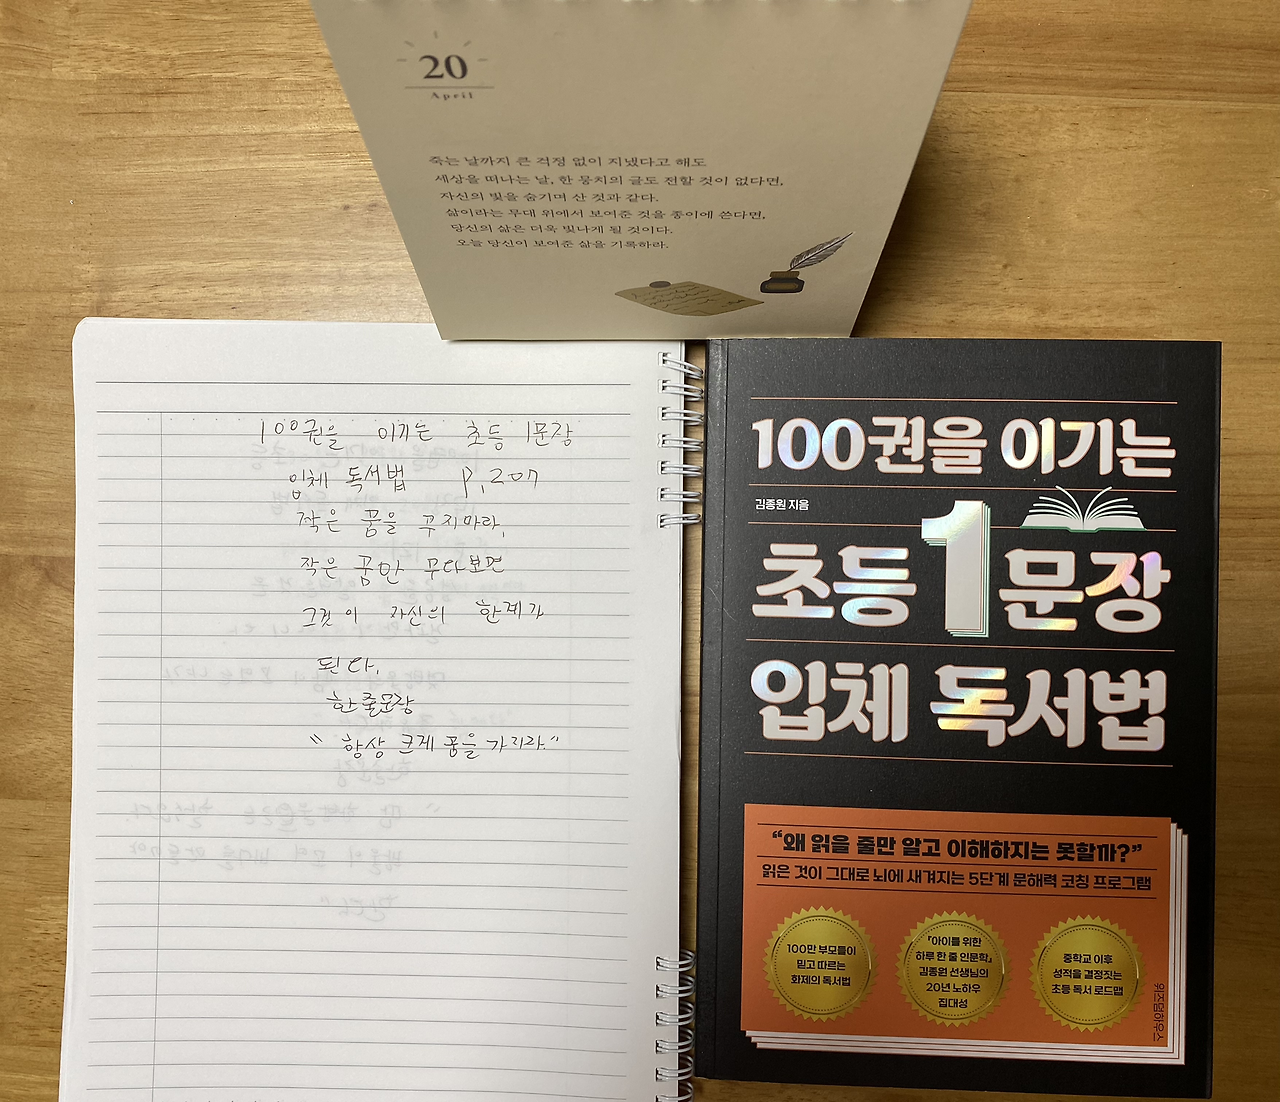 20
April
죽는 날까지 큰 걱정 없이 지냈다고 해도
세상을 떠나는 날, 한 뭉치의 글도 전할 것이 없다면,
자신의 빛을 숨기며 산 것과 같다.
삶이라는 무대 위에서 보여준 것을 종이에 쓴다면,
당신의 삶은 더욱 빛나게 될 것이다.
오늘 당신이 보여준 삶을 기록하라.
100권을 이기는 초등 1문장
입체 독서법 P.207
작은 꿈을 꾸지마라,
작은 꿈만 꾸다보면
그것이 자신의 한계가
된다.
한줄문장
"항상 크게 꿈을 가지라."
100권을 이기는
김종원 지음
초등 1 문장
입체 독서법
“왜 읽을 줄만 알고 이해하지는 못할까?”
읽은 것이 그대로 뇌에 새겨지는 5단계 문해력 코칭 프로그램
100만 부모들이
믿고 따르는
화제의 독서법
『아이를 위한
하루 한 줄 인문학』
김종원 선생님의
20년 노하우
집대성
중학교 이후
성적을 결정짓는
초등 독서 로드맵
위즈덤하우스